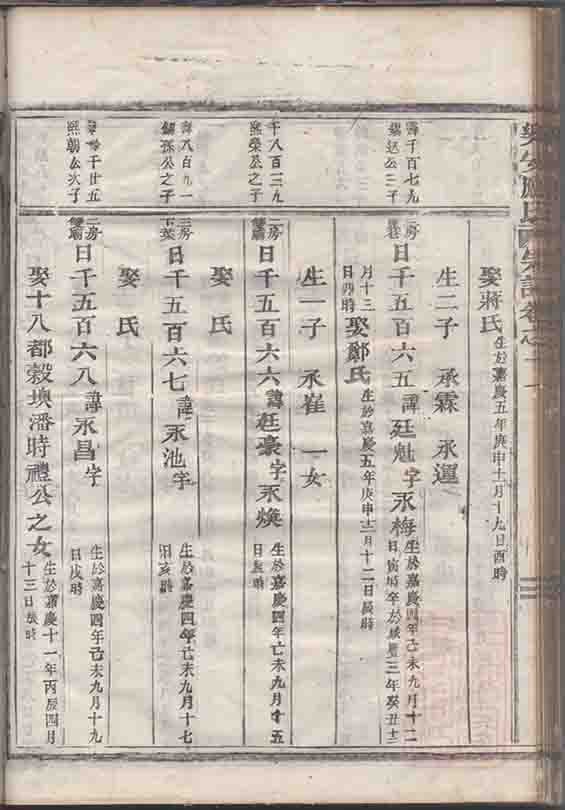 娶蔣氏 生於嘉慶五年庚申十一月十九日酉時
生二子 承霖 承運
壽千百七九
公三子
二房
日千五百六五 諱廷魁 字永梅 生於嘉慶四年己未九月十二
日寅時卒於咸豐三年癸丑十二
月十三
日卯時 娶鄭氏 生於嘉慶五年庚申十二月十二日辰時
生一子 承崔 一女
千八百三九
熙榮公之子
二房
日千五百六六 諱廷豪 字永煥 生於嘉慶四年己未九月十五
日辰時
娶 氏
壽八百九一
孫公之子
三房
日千五百六七 諱永池 字 生於嘉慶四年己未九月十七
日亥時
娶 氏
千廿五
熙朝公次子
二房
日千五百六八 諱永昌 字 生於嘉慶四年己未九月十九
日戌時
娶十八都穀坱潘時禮公之女 生於嘉慶十一年丙辰四月
十三日辰時